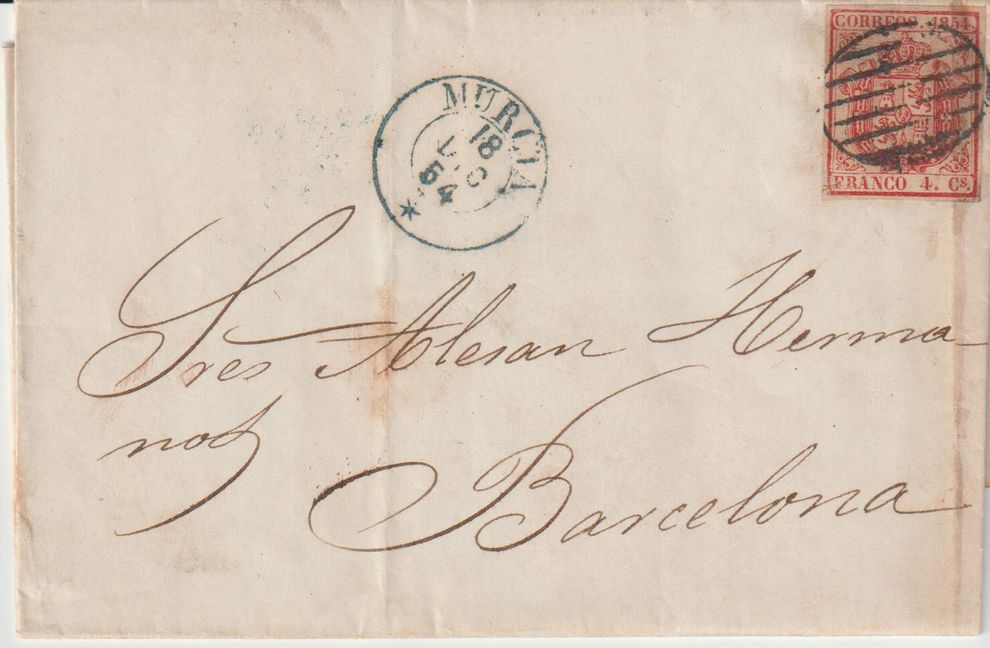 CORREOS. 1854.
FRANCO 4. CS.
MURCIA
18
54
Sres Alesan Herma-
nos
Barcelona